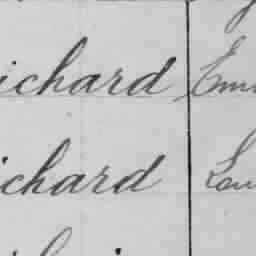 ichard Emi
ichard Lou